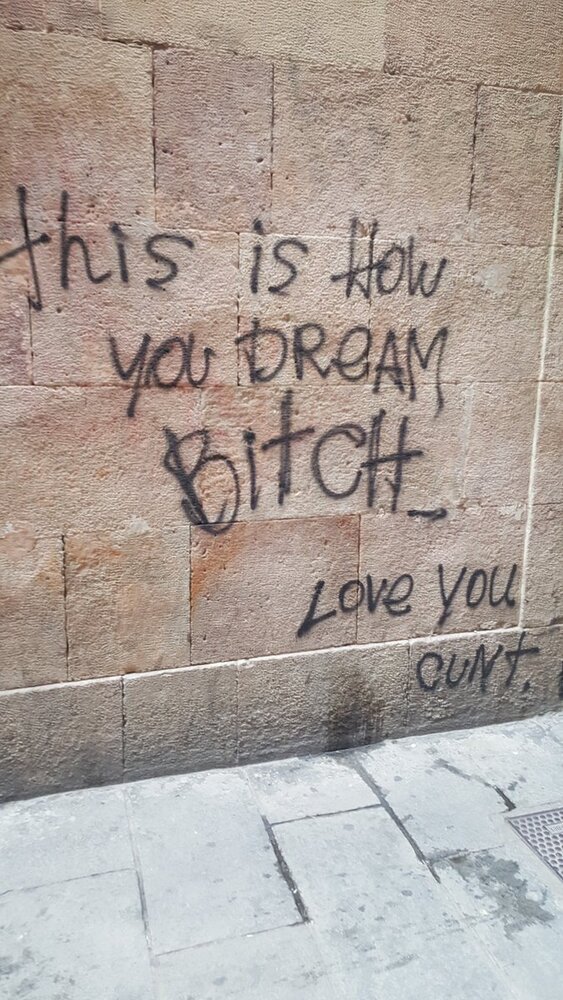 this is How
you DREAM
BitCH_
Love you
CUNT.